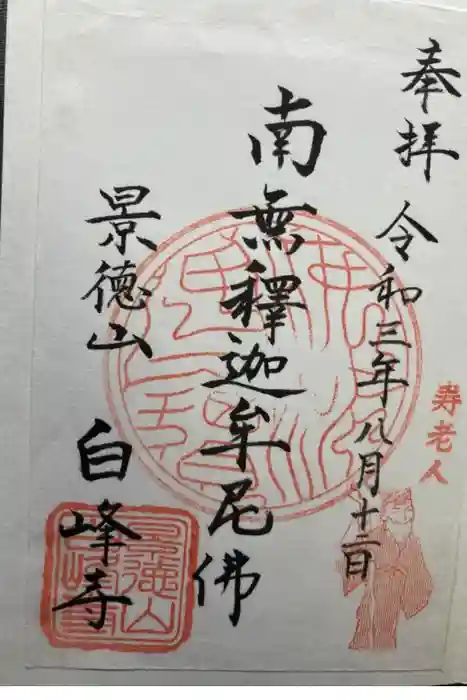 奉拝
令和三年八月十二日
寿老人
南無釋迦牟尼佛
景德山
白峰寺